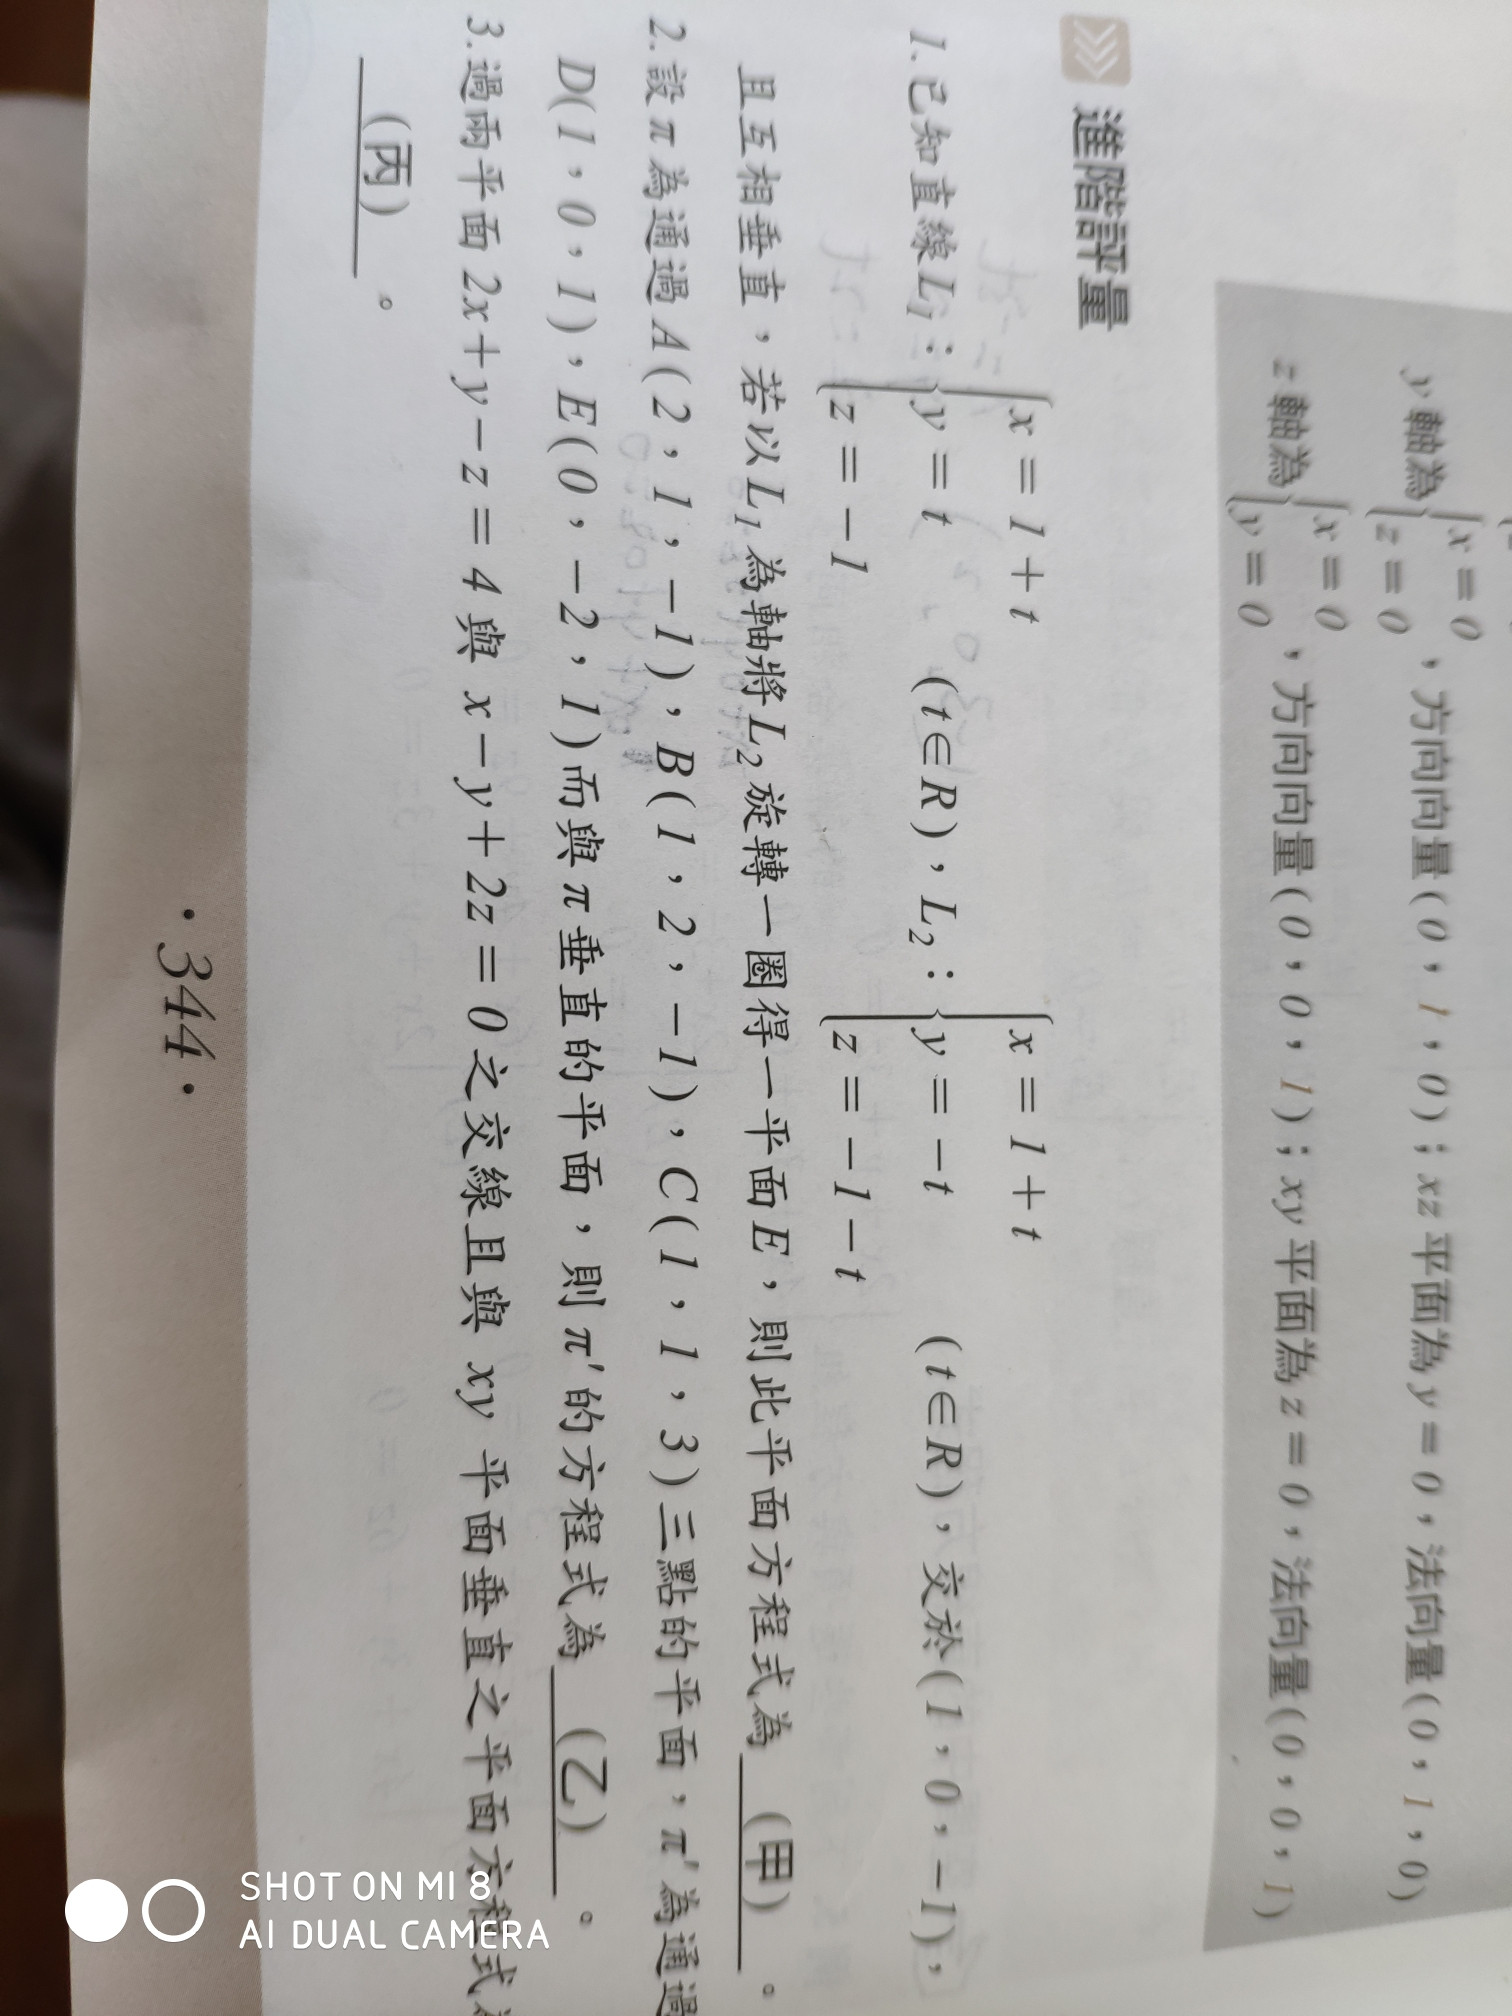 y 軸為{x=0
z=0，方向向量(0，1，0)；xz平面為y=0，法向量(0，1，0)
z 軸為{x=0
y=0，方向向量(0，0，1)；xy平面為z=0，法向量(0，0，1)
進階評量
1.已知直線L₁：{x=1+t
y=t
z=-1 (t∈R)，L₂：{x=1+t
y=-t
z=-1-t (t∈R)，交於(1，0，-1)，
且互相垂直，若以L₁為軸將L₂旋轉一圈得一平面E，則此平面方程式為 (甲) 。
2.設π為通過A(2，1，-1)，B(1，2，-1)，C(1，1，3)三點的平面，π′為通過
D(1，0，1)，E(0，-2，1)而與π垂直的平面，則π′的方程式為 (乙) 。
3.過兩平面2x+y-z=4與 x-y+2z=0之交線且與 xy 平面垂直之平面方程式為
(丙) 。
·344·
SHOT ON MI 8
AI DUAL CAMERA